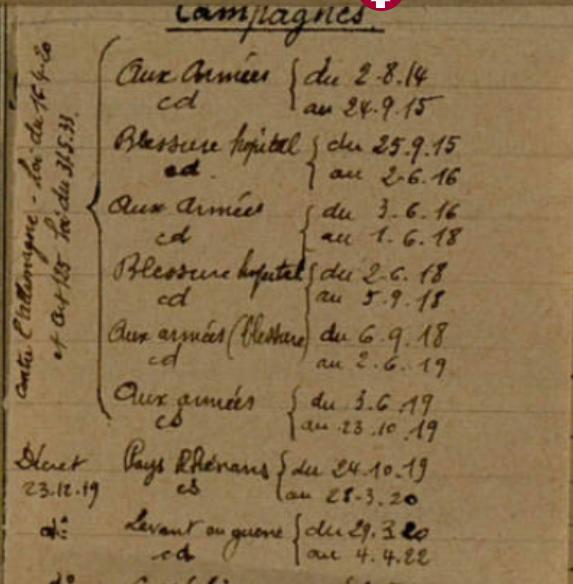 Campagnes.
Contre l'Allemagne - Loi du 16.4.20
et Art 125 Loi du 31.5.33
Aux Armées { du 2.8.14
cd au 24.9.15
Blessure hôpital { du 25.9.15
cd. au 2.6.16
Aux Armées { du 3.6.16
cd au 1.6.18
Blessure hopital { du 2.6.18
cd au 5.9.18
Aux armées (blessure) du 6.9.18
cd au 2.6.19
Aux armées { du 3.6.19
cs au 23.10.19
Décret Pays Rhénans { du 24.10.19
23.12.19 cs au 28.3.20
Levant en guerre { du 29.3.20
cd au 4.4.22